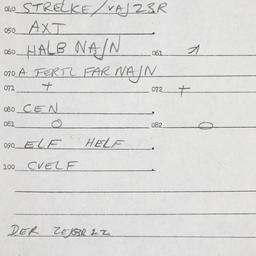 040 STRELKE / VAJZSR
050 AXT
060 HALB NAJN 061 ↗
070 A FERTL FAR NAJN
071 + 072 +
080 CEN
081 O 082 O
090 ELF HELF
100 CVELF
DER